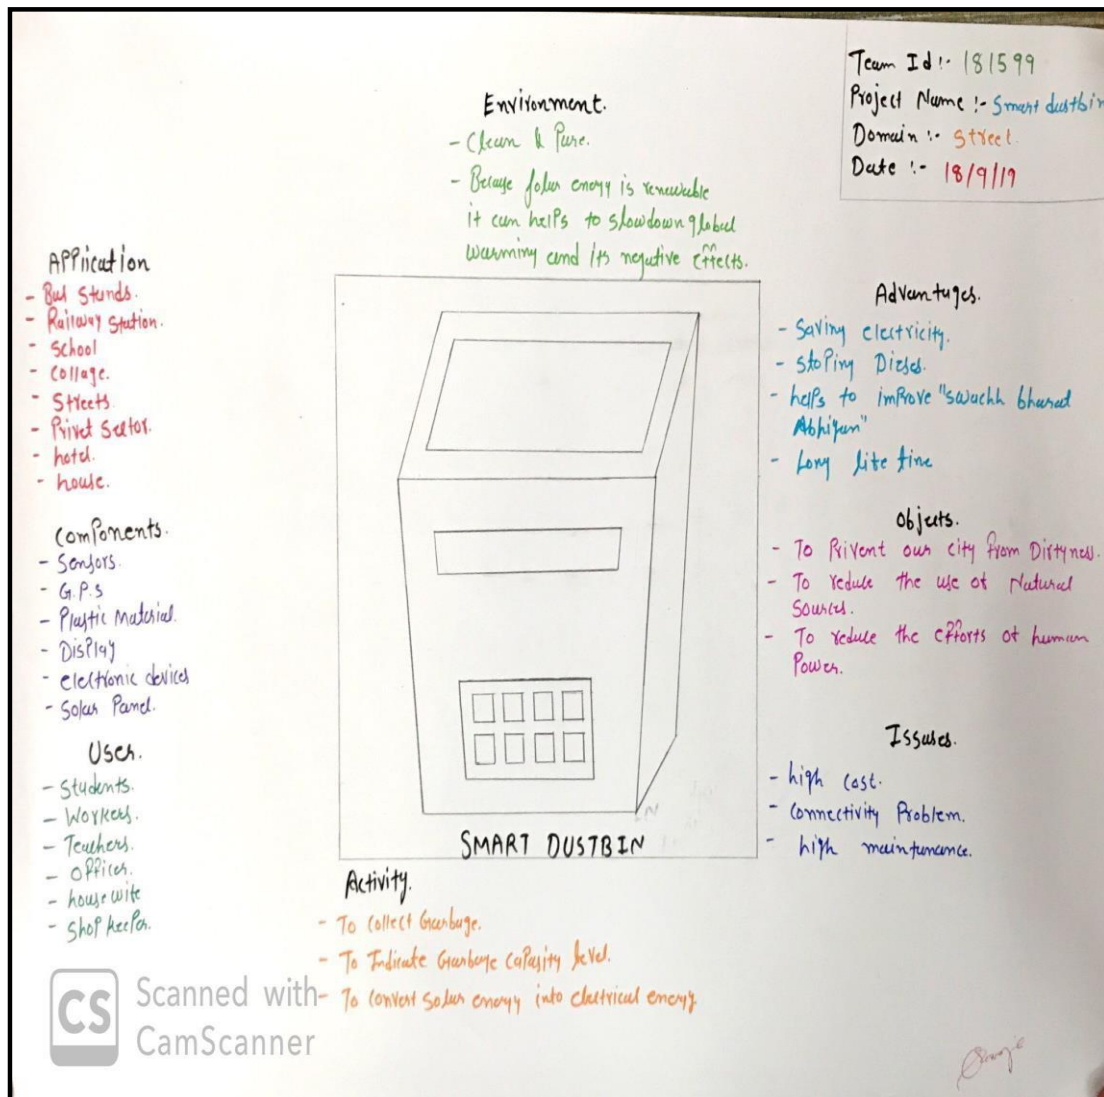 Team Id :- 181599
Project Name :- Smart dustbin
Domain :- Street
Date :- 18/9/19
Environment.
- Clean & Pure.
- Becaue solar energy is renewable
it can helps to slowdown global
warming and its negative effects.
Application
- Bus Stands.
- Railway Station.
- School
- Collage.
- Streets.
- Privet Sector.
- hotel.
- house.
Components.
- Sensors.
- G.P.S
- Plastic Material.
- Display
- electronic devices
- Solar Panel.
User.
- Students.
- Workers.
- Teachers.
- Officer.
- housewife
- Shop keeper.
SMART DUSTBIN
Activity.
- To Collect Garbage.
- To Indicate Garbage Capasity level.
- To convert Solar energy into electrical energy.
Advantages.
- Saving electricity.
- Stoping Dieses.
- helps to improve "swachh bharat
Abhiyan"
- Long life time
Objects.
- To Privent our city from Dirtyness.
- To reduce the use of Natural
Sources.
- To reduce the efforts of human
Power.
Issues.
- high cost.
- Connectivity Problem.
- high maintanance.
CS
Scanned with
CamScanner